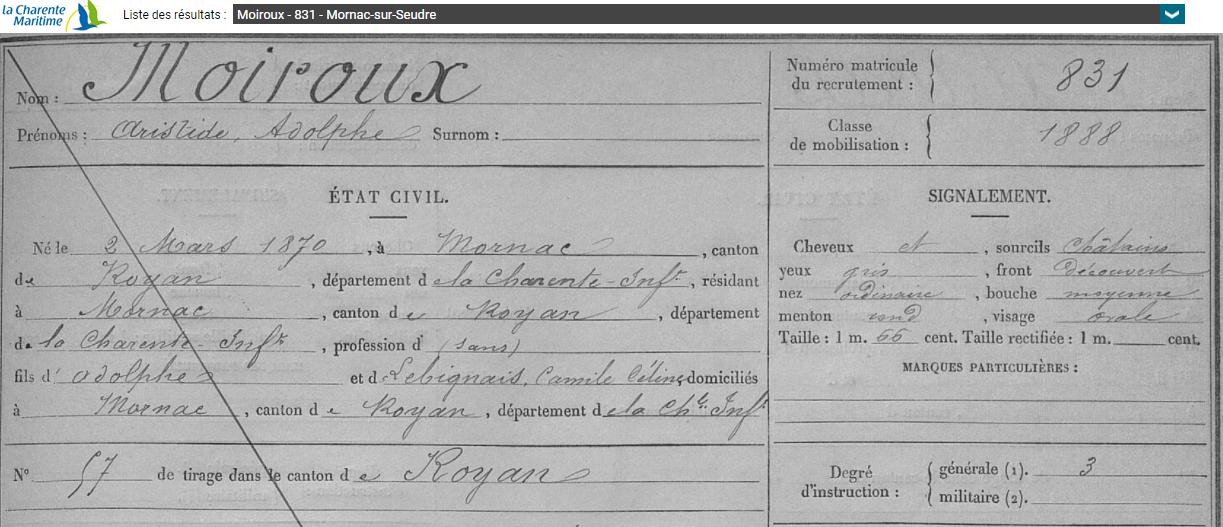 la Charente
Maritime
Liste des résultats : Moiroux - 831 - Mornac-sur-Seudre
Nom : Moiroux
Prénoms : Aristide, Adolphe Surnom :
Numéro matricule
du recrutement : 831
Classe
de mobilisation : 1888
ÉTAT CIVIL.
Né le 2 Mars 1870, à Mornac, canton
de Royan, département de la Charente-Infre, résidant
à Mornac, canton de Royan, département
de la Charente-Infre, profession d (sans)
fils d'Adolphe et d Lebignais, Camile Céline domiciliés
à Mornac, canton de Royan, département de la Chte Infre
N° 57 de tirage dans le canton de Royan
SIGNALEMENT.
Cheveux et, sourcils châtains
yeux gris, front découvert
nez ordinaire, bouche moyenne
menton rond, visage ovale
Taille : 1 m. 66 cent. Taille rectifiée : 1 m. cent.
MARQUES PARTICULIÈRES :
Degré
d'instruction :
générale (1). 3
militaire (2).